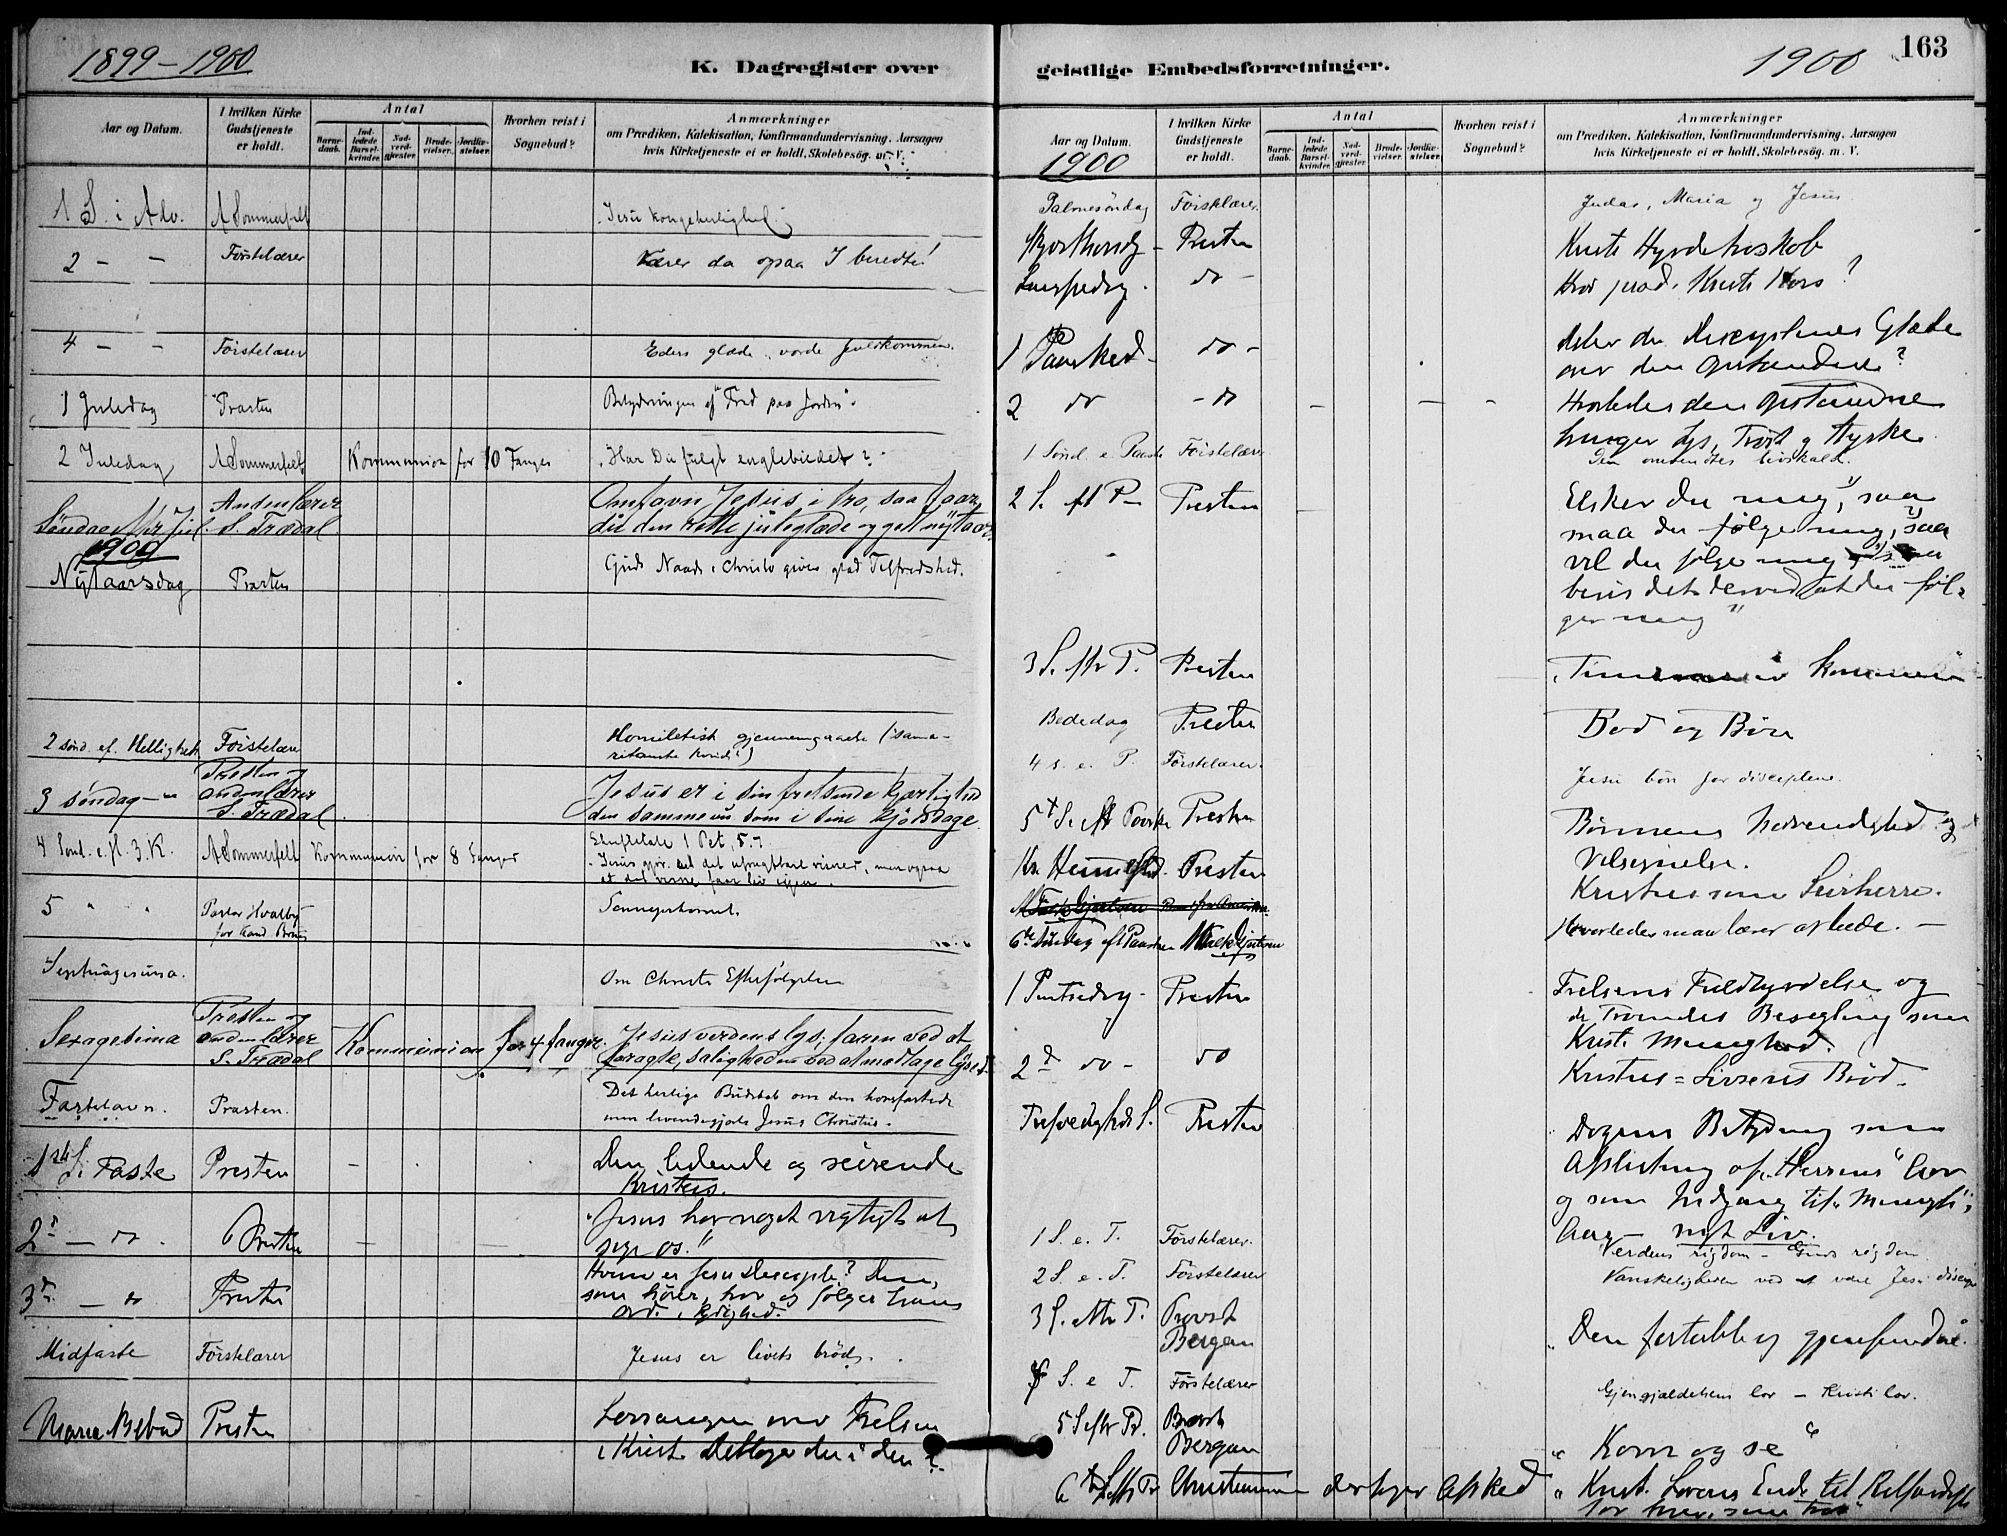 1899–1900
K. Dagregister over
Aar og Datum.
I hvilken Kirke Gudstjeneste er holdt.
Antal
Barne-daab.
Ind-ledede Barsel-kvinder.
Nad-verd-gjester.
Brude-vielser.
Jordfæ-stelser.
Hvorhen reist i Sognebud?
Anmærkninger
om Prædiken, Katekisation, Konfirmandundervisning, Aarsagen
hvis Kirketjeneste ei er holdt, Skolebesøg. m. V.
1 S. i Adv. A Sommerfelt Jesu kongeherlighed.
2 – – Førstelærer Værer da ogsaa I beredte!
4 – – Førstelærer Eders glæde vorde fuldkommen.
1 Juledag Præsten Betydningen af "Fred paa Jorden".
2 Juledag A Sommerfelt Kommunion for 10 Fanger "Har Du fulgt englebudet?"
Søndag eftr Jul. Andenlærer S. Trædal Omfavn Jesus i tro, saa faar
du den rette juleglæde og godt nytaar.
1900
Nytaarsdag Præsten Guds Naade i Christo giver glad Tilfredshed.
2 sønd. ef. Helligtrek Førstelærer Homiletisk gjennemgaaelse (sama-
ritanske kvinde)
3 søndag – " Presten og andenlærer S. Trædal Jesus er i sin frelsende kjærlighed
den samme nu som i sine kjødsdage.
4 Sønd. e. h. 3. K. A Sommerfelt Kommunion for 8 Fanger 1 Pet. 5.7
5 " " Pastor Hvalby for Kand Bruun Sennepskornet.
Septuagesima. Om Christi Efterfølgelse
Sexagesima Presten og andenlærer S. Trædal Kommunion for 4 fanger. Jesus verdens lys; faren ved at
foragte, saligheden ved at modtage lyset.
Fastelavn. Præsten. Det herlige Budskab om den korsfæstede
men levendegjorte Jesus Christus.
1ste S. i Faste Presten Den lidende og seirende
Kristus.
2 – do. Presten "Jesus har noget vigtigt at
sige os."
3 – do Presten Hvem er Jesu Disciple? Den,
som hører, tror og følger hans
Ord i Lydighed.
Midfaste Førstelærer Jesus er livets brød.
Maria Bebud Presten Lovsangen over Frelsen
i Krist. Deltager du i den?
163
1900
geistlige Embedsforretninger.
Aar og Datum.
1900
I hvilken Kirke Gudstjeneste er holdt.
Antal
Barne-daab.
Ind-ledede Barsel-kvinder.
Nad-verd-gjester.
Brude-vielser.
Jordfæ-stelser.
Hvorhen reist i Sognebud?
Anmærkninger
om Prædiken, Katekisation, Konfirmandundervisning, Aarsagen
hvis Kirketjeneste ei er holdt, Skolebesøg. m. V.
Palmesöndag Førstelærer. Judas, Maria og Jesus
Skjærthorsdg – Presten Kristi Hyrdetroskab
Langfredag. do – Hvad præd. Kristi Kors?
1 Paasked – do – Deler du Disciplenes Glæde
over den Opstandne?
2 do – do Hvorledes den Opstandne
bringer Lys, Trøst og Styrke
1 Sønd e Paaske Førstelærer Den livskald.
2 S. eft P – Presten Elsker du mig", saa
maa du følge mig, saa
vil du følge mig
bevis det derved at du føl-
ger mig"
3 S. eftr P. Presten kommen"
Bededag Presten Bod og Bøn
4 s. e. P. Førstelærer. Jesu bön for disciplene.
5te S. eft Paaske Presten Bønnens Nødvendighed og
Velsignelse.
Kr. Himmelfd. Presten Kristus som Seirherre.
6te Søndag eft Paasken Hvorledes man lærer at bede. –
1 Pintsedag – Presten Frelsens Fuldbyrdelse og
de Troendes Besegling som
Kristi Menighed.
2d do – do Kristus = Livsens Brød.
Trefoldigheds S. Presten Dagens Betydning som
Afslutning af "Herrens" Aar
og som Indgang til "Menigh's"
Aar – nyt Liv.
1 S. e. T. Førstelærer. Verdens rigdom – Guds rigdom.
2 S. e. T. Førstelærer Vanskeligheden ved at være Jesu discipel
3 S. eftr T. Provst Bergan "Den fortabte og gjenfundne.
4 S. e T. Førstelærer Gjengjældelsens lov – Kristi lov.
5 S eftr Tr. Provst Bergan " Kom og se "
6te S. eftr Tr Christensen der tager Afsked " Krist. Lovens Ende til Retfærdigh
for hver, som tror"